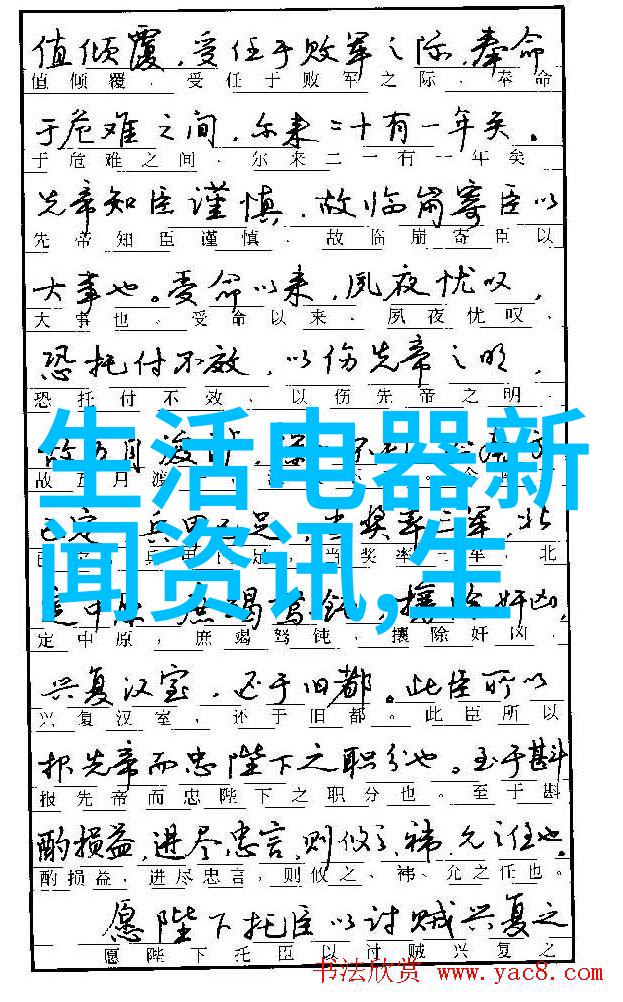 值倾覆，受任于败军之际，奉命
值倾覆．受任于败军之际．奉命
于危难之间，尔来二十有一年矣。
于危难之间．尔来二一有一年矣
先帝知臣谨慎，故临崩寄臣以
先帝知臣谨慎．故临崩寄臣以
大事也。受命以来，夙夜忧叹，
大事也．受命以来．夙夜忧叹．
恐托付不效，以伤先帝之明，
恐托付不效．以伤先帝之明．
故五月渡
故五月渡
生活电器新
闻资讯,生
已定 兵甲 足，当奖率三军，北
兵 足，当奖率 军，北
定中原 庶竭驽钝，攘除奸凶，
定中原，庶竭驽钝，攘除奸凶，
兴复汉室，还于旧都。此臣所以
兴复汉室，还于旧都。此臣所以
报先帝而忠陛下之职分也。至于斟
报先帝而忠陛下之职分也。至于斟
酌损益，进尽忠言，则攸之、祎、允之任也。
酌损益．进尽忠言，则攸之、祎、允之任也。
愿陛下托臣以讨贼兴复之
愿陛下托臣以讨贼兴复之
书法欣赏 www.yac8.com